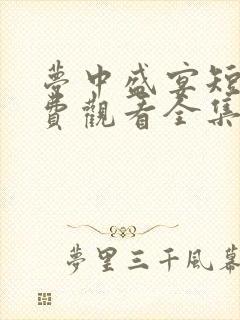 夢中盛宴短
費觀看全集
夢里三千風幕